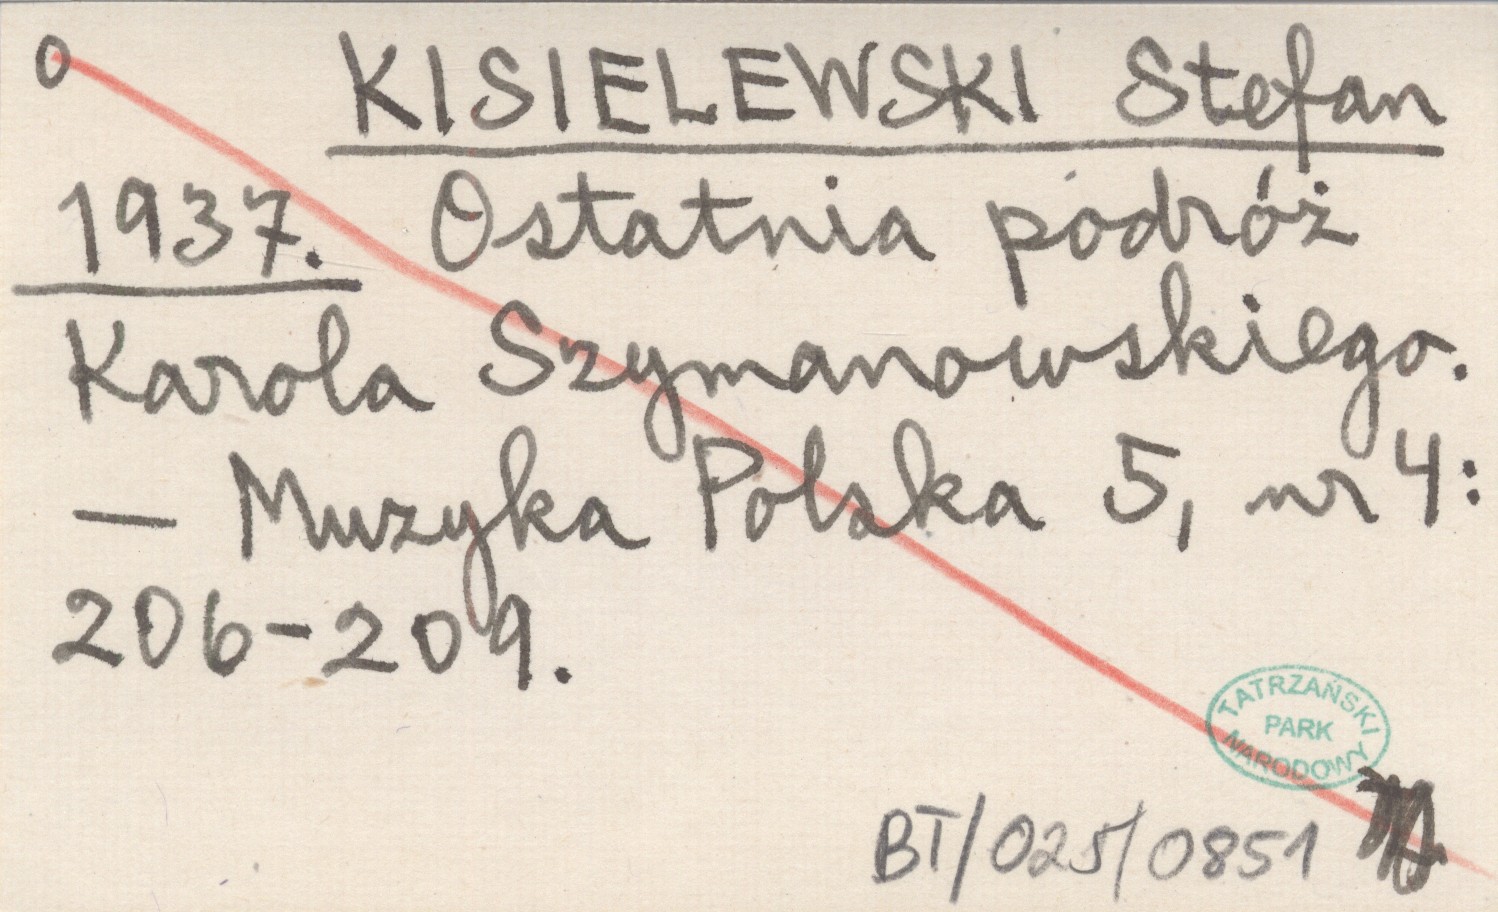 0 KISIELEWSKI Stefan
1937. Ostatnia podróż
Karola Szymanowskiego.
— Muzyka Polska 5, nr 4:
206-209.
TATRZAŃSKI
PARK
NARODOWY
BT/025/0851